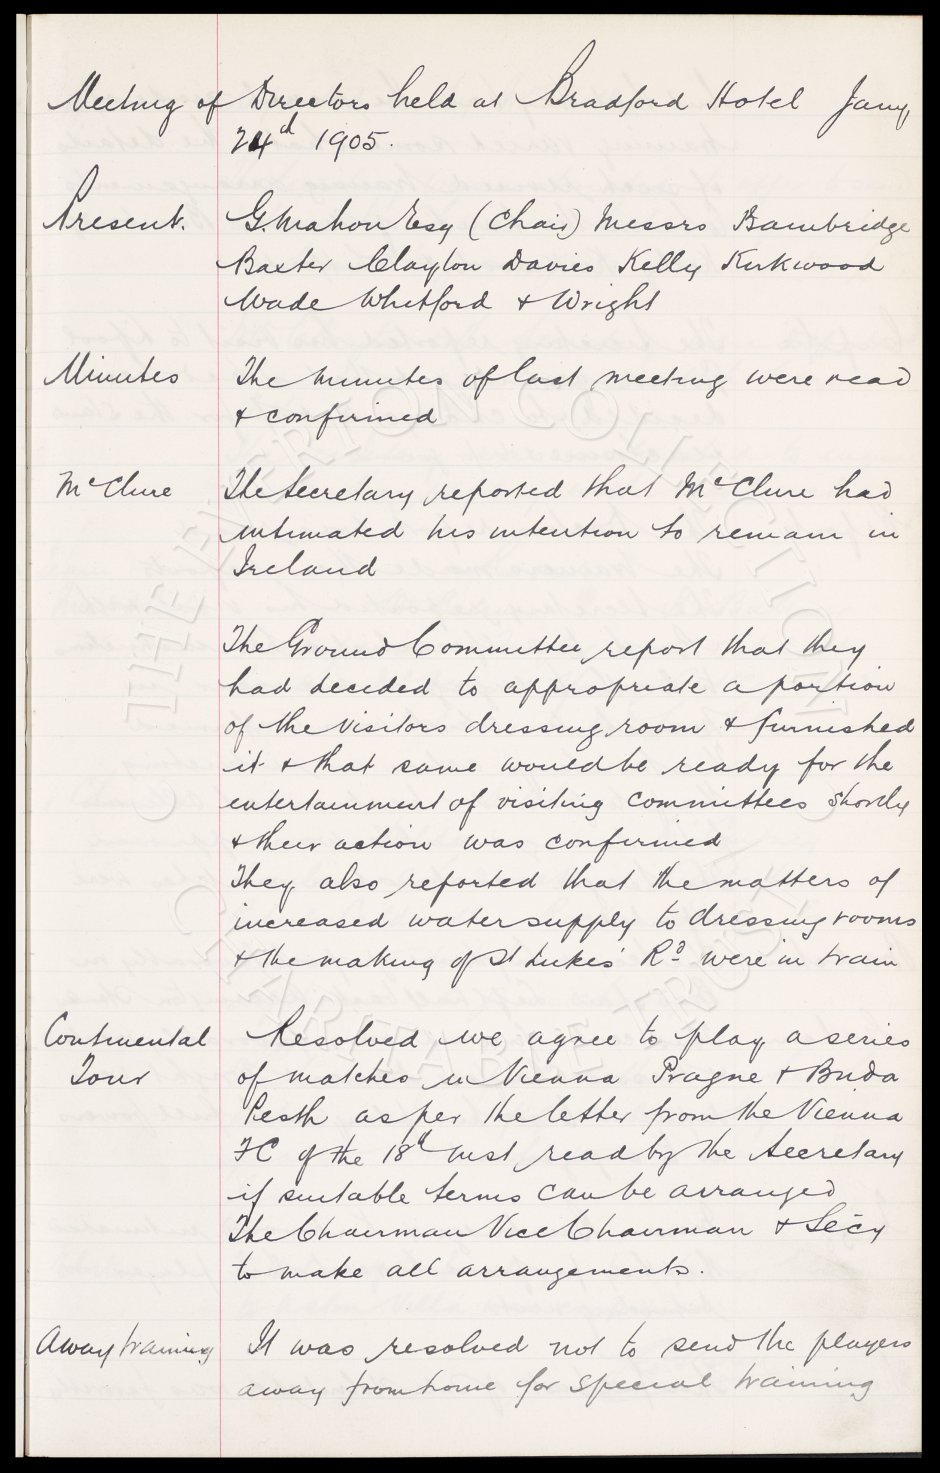 Meeting of Directors held at Bradford Hotel Jany
24th 1905.
Present. G. Mahon Esq (Chair) Messrs Bainbridge
Baxter Clayton Davies Kelly Kirkwood
Wade Whitford & Wright
Minutes The minutes of last meeting were read
& confirmed
McClure The Secretary reported that McClure had
intimated his intention to remain in
Ireland
The Ground Committee report that they
had decided to appropriate a portion
of the visitors dressing room & furnished
it & that same would be ready for the
entertainment of visiting committees shortly
& their action was confirmed
They also reported that the matters of
increased water supply to dressing rooms
& the making of St Lukes' Rd were in train
Continental Resolved we agree to play a series
Tour of matches in Vienna Prague & Buda
Pesth as per the letter from the Vienna
FC of the 18th inst read by the Secretary
if suitable terms can be arranged
The Chairman Vice Chairman & Secy
to make all arrangements.
Away training It was resolved not to send the players
away from home for special training
THE EVERTON COLLECTION
CHARITABLE TRUST